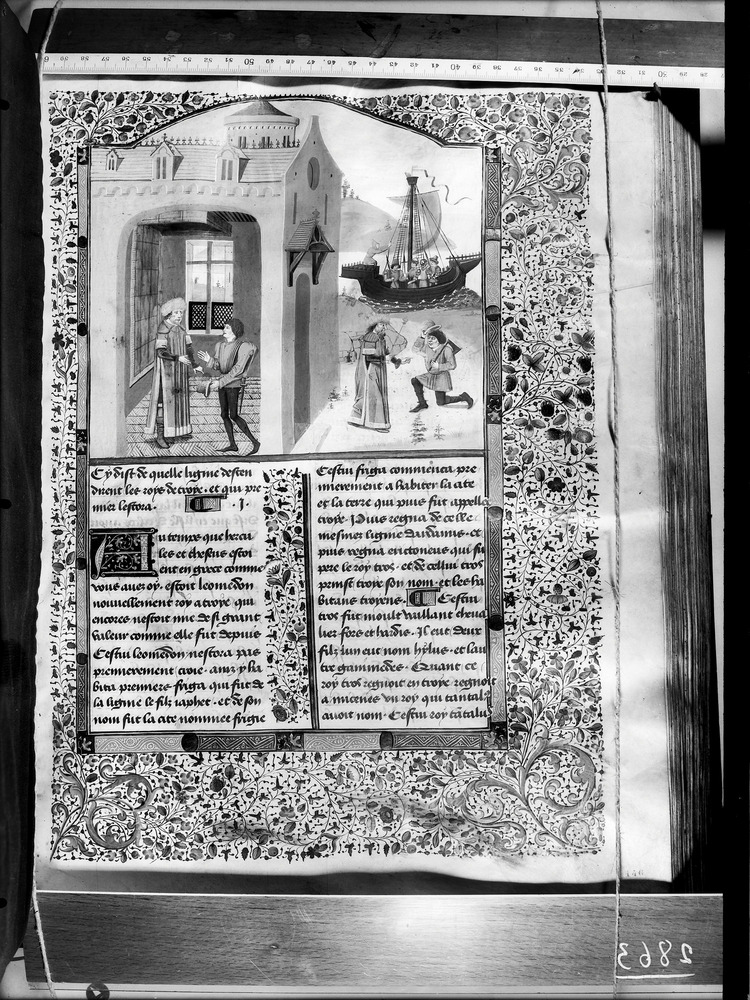 Cy dist de quelle ligniee descen
dirent les roys de troye · et qui pre
mier les cora · J ·
Au temps que hercu
les et theseus estoi
ent en grece comme
vous auez oy · estoit leomedon
nouuellement roy a troye qui
encores nestoit mie de si grant
valeur comme elle fut depuis
Cestui leomedon ne fora pas
premierement troie · aincz y ha
bita premiers friga qui fut de
la ligniee le filz iaphet · et de son
nom fut la cite nommee frigie
Cestui friga commenca pre
mierement a habiter la cite
et la terre qui puis fut appelle
troye · Puis regna de celle
mesmes ligniee dardanus · et
puis regna erictoneus qui fu
pere le roy tros · et de cellui tros
prinst troye son nom · et les ha
bitans troyens · Cestui
tros fut moult vaillant cheua
lier fors et hardis · Il eut deux
filz lun eut nom hylus · et lau
tre ganimedes · Quant ce
roy tros regnoit en troye regnoit
a micenes vn roy qui tantal
auoit nom · Cestui roy tātalu
2863